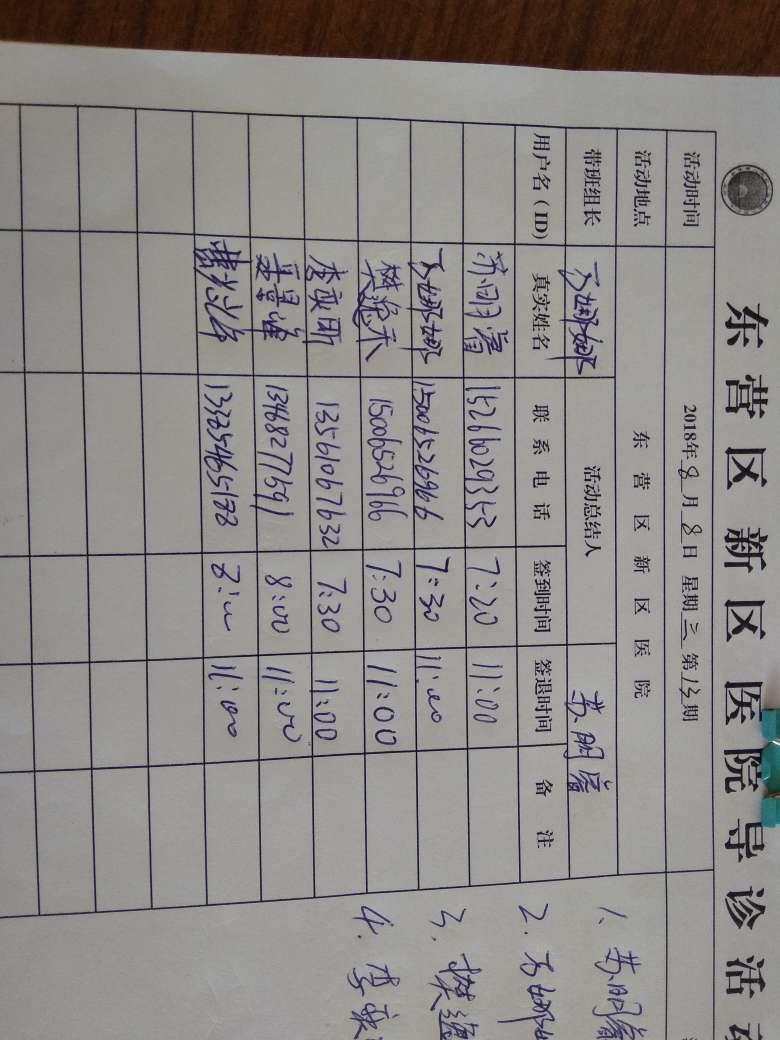 东营区新区医院导诊活动
活动时间 2018年8月8日 星期三 第13期
活动地点 东营区新区医院
带班组长 活动总结人 苏明
用户名（ID） 真实姓名 联系电话 签到时间 签退时间 备注
苏明 15266029353 7:20 11:00
娜娜 15006526966 7:30 11:00
樊 15006526966 7:30 11:00
李 13561067632 7:30 11:00
13468277591 8:00 11:00
8:00 11:00
1. 苏明
2.
3. 樊
4. 李